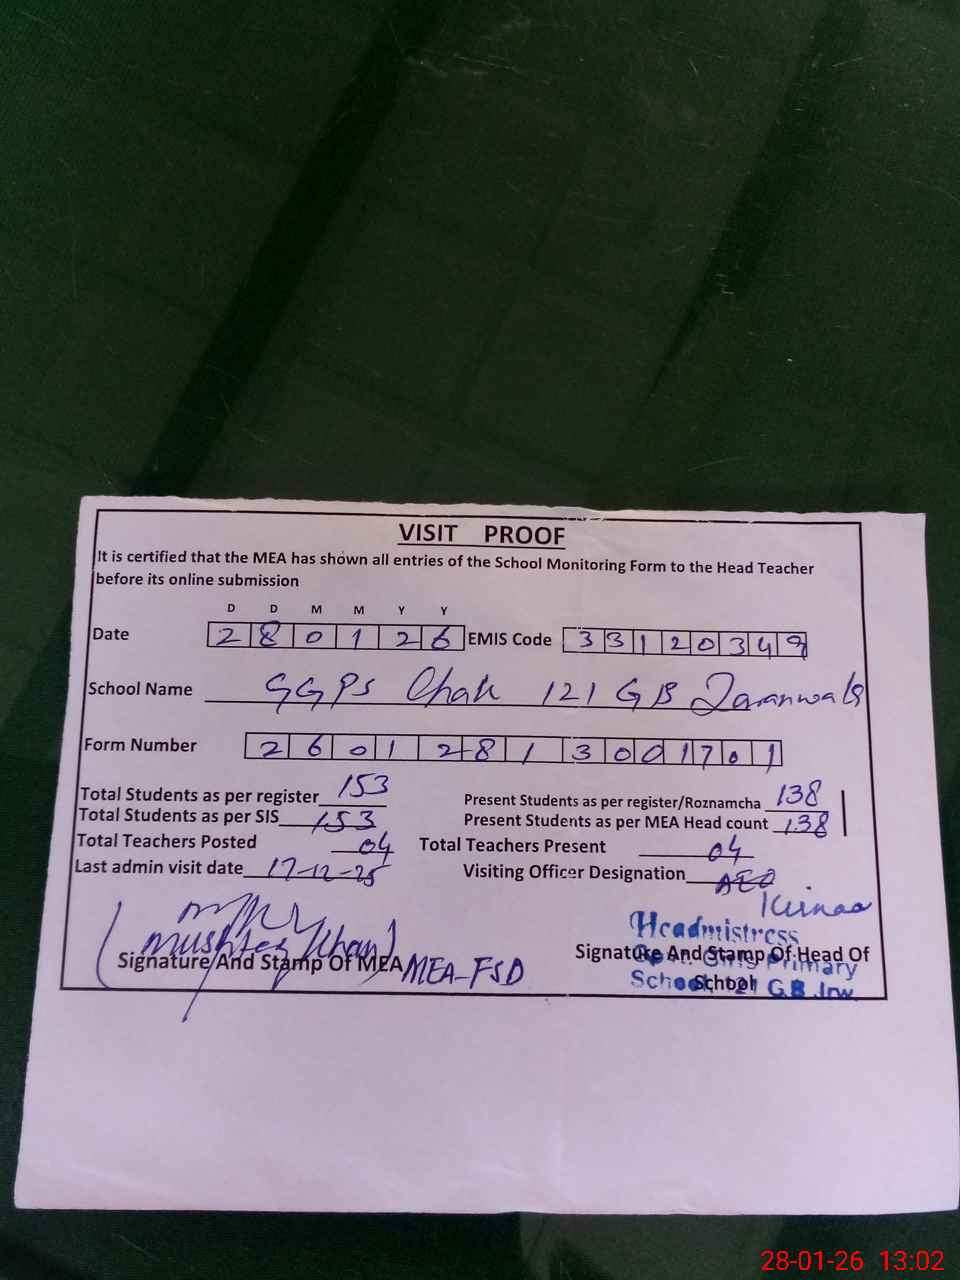 VISIT PROOF
It is certified that the MEA has shown all entries of the School Monitoring Form to the Head Teacher
before its online submission
D D M M Y Y
Date 2 8 0 1 2 6 EMIS Code 3 3 1 2 0 3 4 9
School Name GGPS Chak 121 GB Jaranwala
Form Number 2 6 0 1 2 8 1 3 0 0 1 7 0 1
Total Students as per register 153 Present Students as per register/Roznamcha 138
Total Students as per SIS 153 Present Students as per MEA Head count 138
Total Teachers Posted 04 Total Teachers Present 04
Last admin visit date 17-12-25 Visiting Officer Designation AEO
(Mushtaq Khan) Headmistress
Signature And Stamp Of MEA MEA-FSD Signature And Stamp Of Head Of
School
Girls Primary
School 121 G.B Jrw
28-01-26 13:02